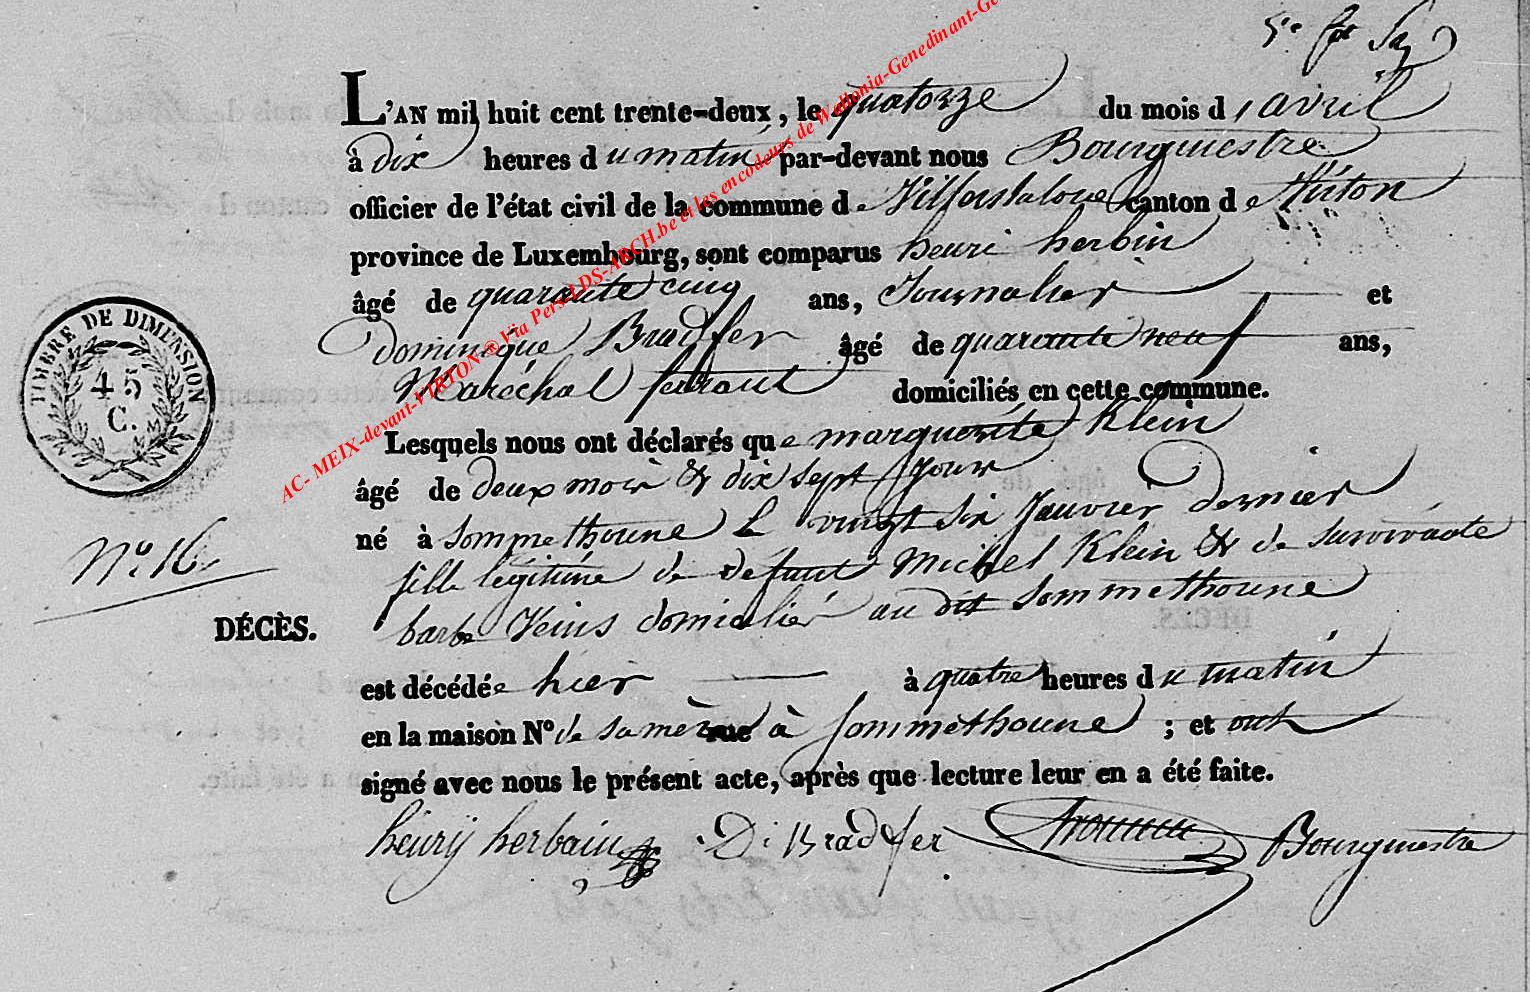 L'AN mil huit cent trente-deux, le quatorze du mois d'avril
à dix heures du matin par-devant nous Bourgmestre
officier de l'état civil de la commune de Villerslaloue canton de Virton
province de Luxembourg, sont comparus henri herbin
âgé de quarante cinq ans, Journalier et
dominique Bradfer âgé de quarante neuf ans,
Maréchal ferrant domiciliés en cette commune.
Lesquels nous ont déclarés que marguerite Klein
âgé de deux mois & dix sept jour
né à Sommethoune le vingt six Janvier dernier
fille légitime de defunt Michel Klein & de survivante
barbe domicilié au dit Sommethoune
est décédée hier à quatre heures du matin
en la maison N° de sa mère rue à Sommethoune ; et ont
signé avec nous le présent acte, après que lecture leur en a été faite.
henrÿ herbain D. Bradfer Bourgmestre
TIMBRE DE DIMENSION
45
C.
N° 16
DÉCÈS.
AC- MEIX-devant-VIRTON ® Via Pers-LDS-ARCH.be et les encodeurs de Wallonia-Genedinant-Ge